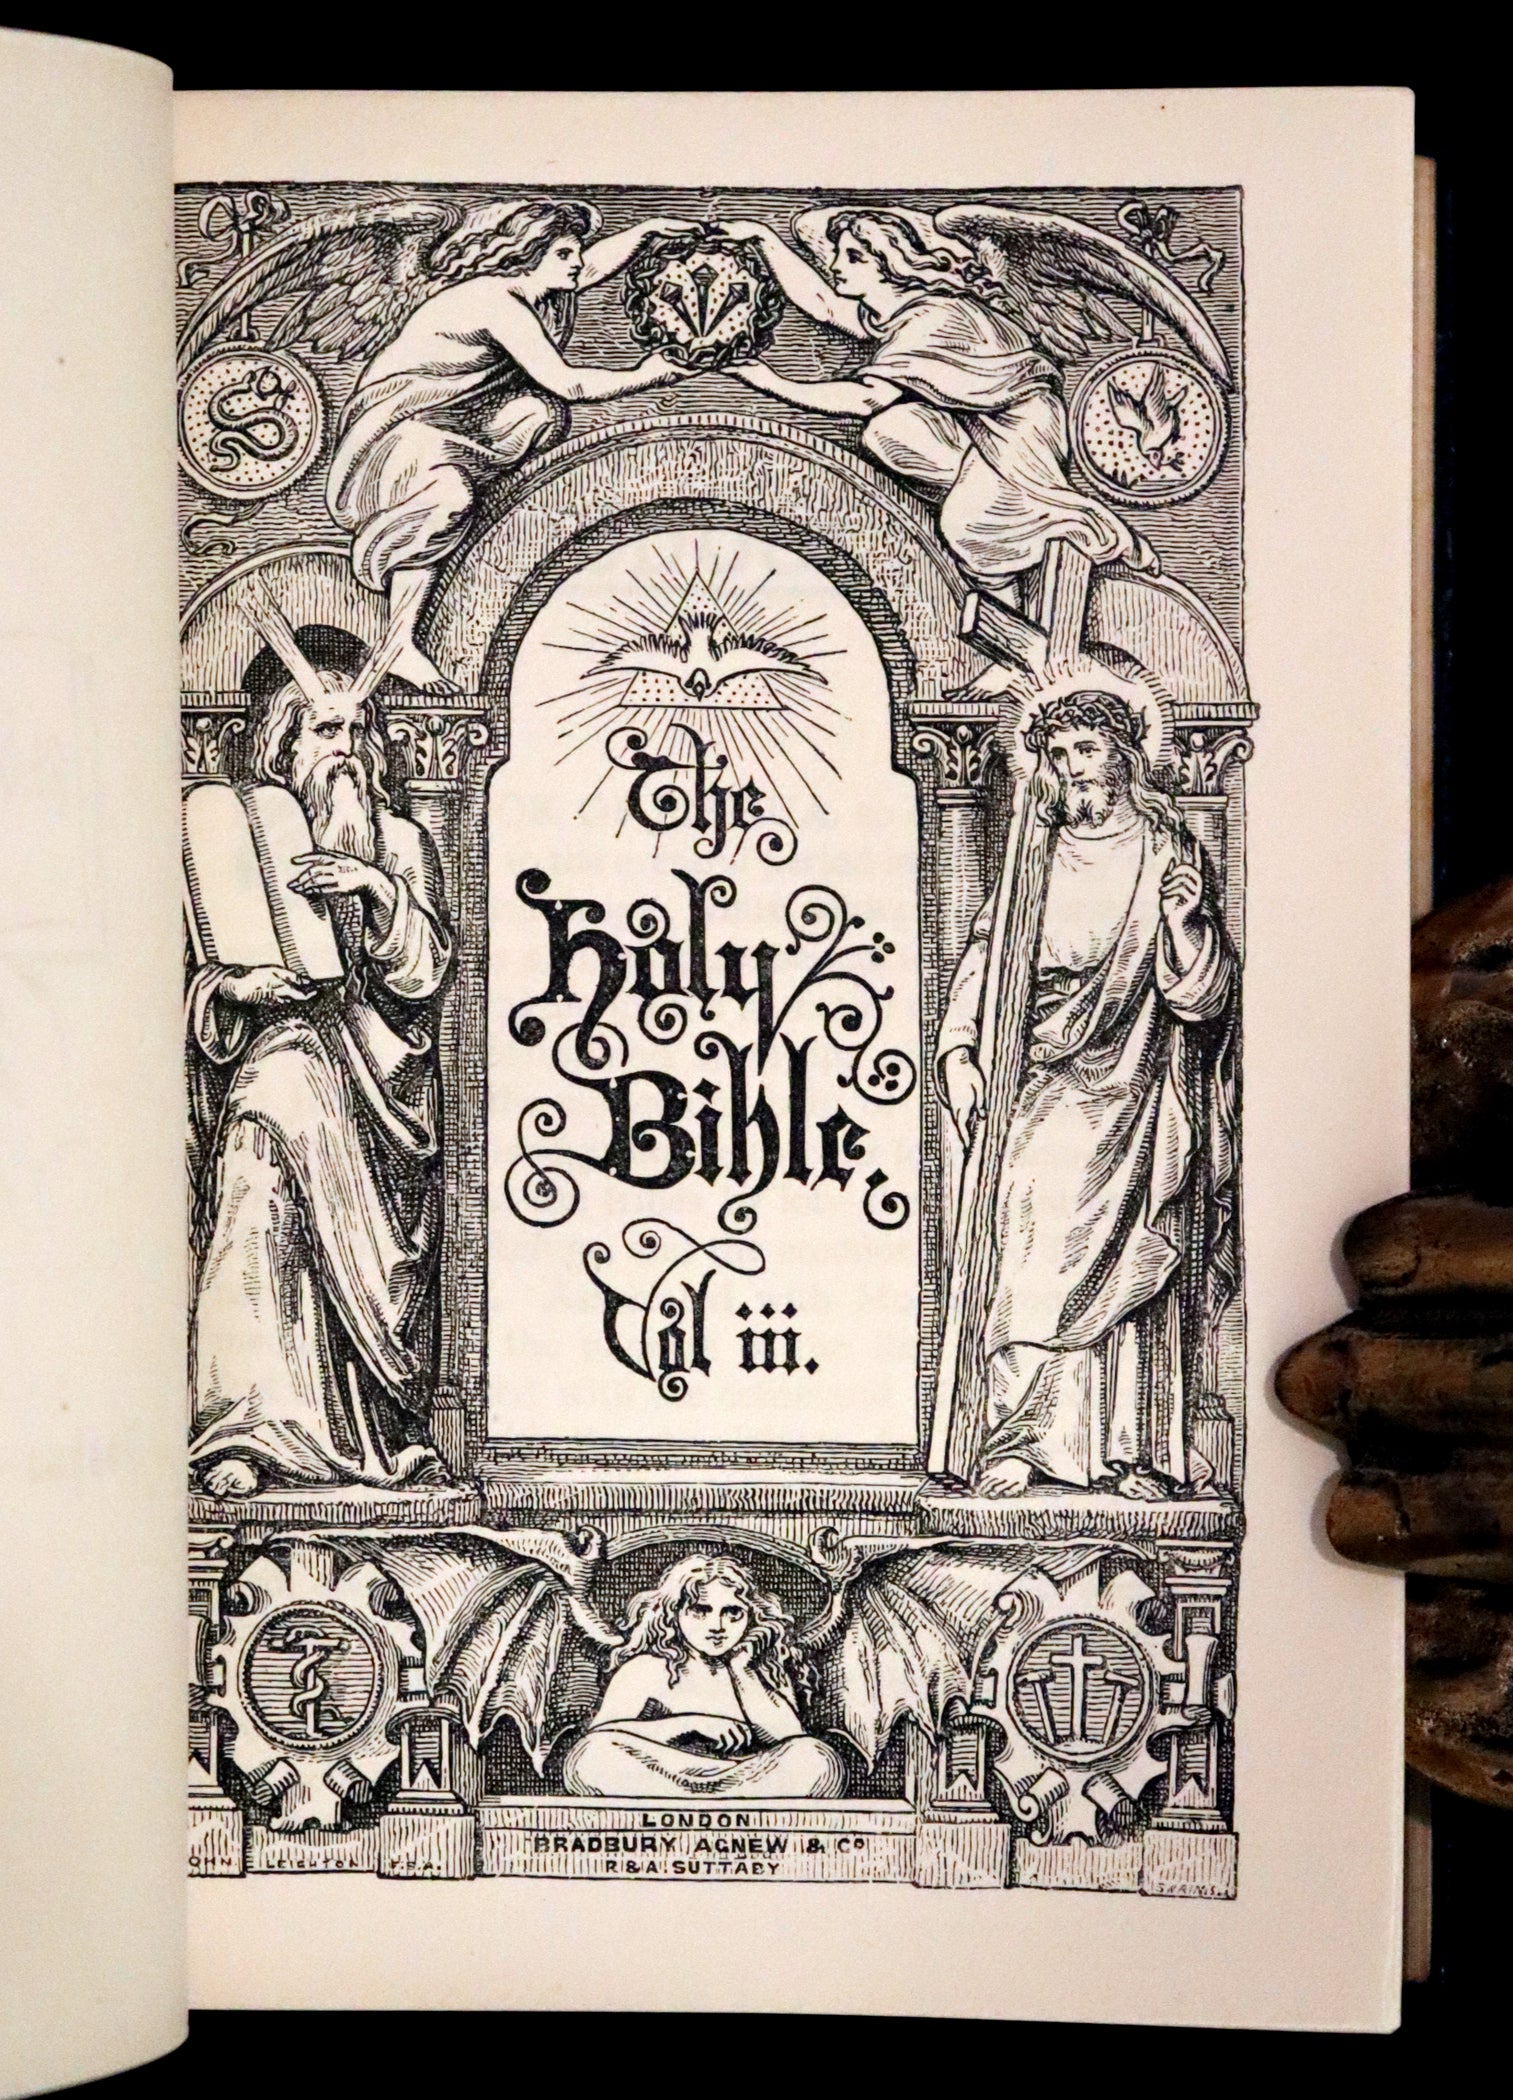 The
Holy
Bible.
Vol iii.
LONDON
BRADBURY AGNEW & Co
R & A. SUTTABY
OHN LEIGHTON F.S.A.